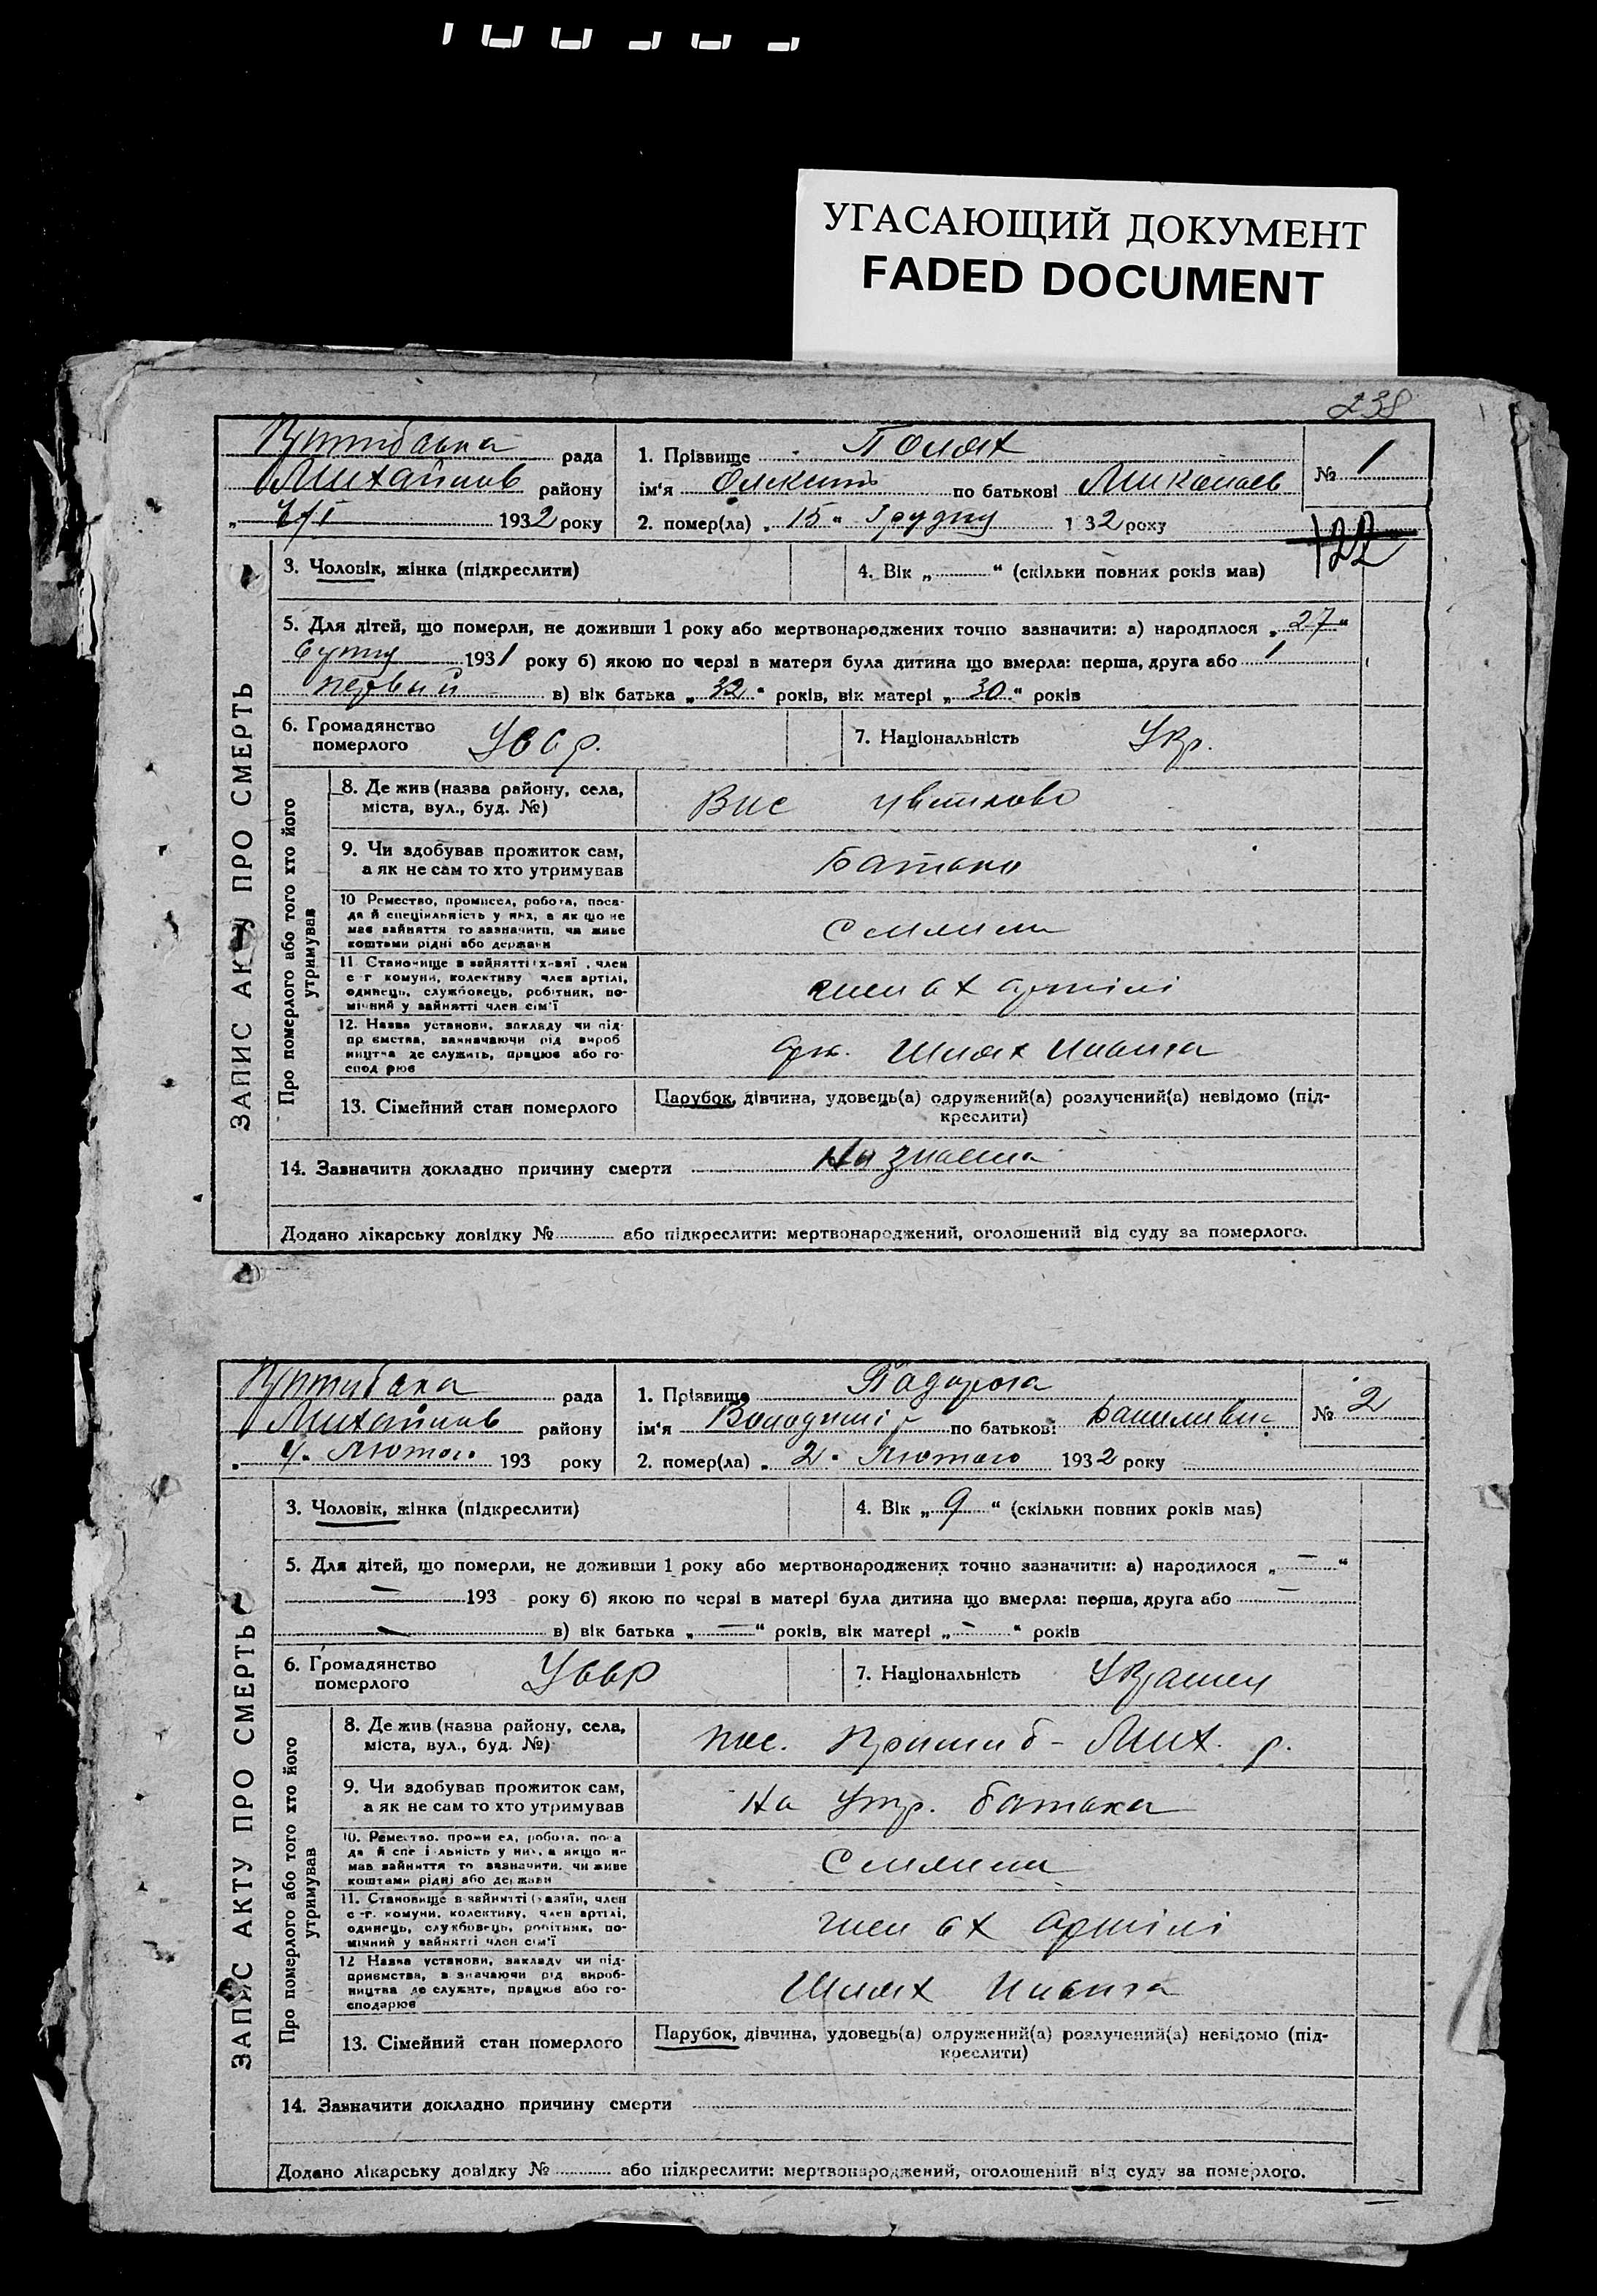 УГАСАЮЩИЙ ДОКУМЕНТ
FADED DOCUMENT
238
рада
Михайлов району
„ 1932 року
1. Прізвище Поляк
ім‘я по батькові Миколаев
2. помер(ла) „ 15 “ Грудну 1 32 року
№ 1
122
ЗАПИС АКТУ ПРО СМЕРТЬ
3. Чоловік, жінка (підкреслити)
4. Вік „ “ (скільки повних років мав)
5. Для дітей, що померли, не доживши 1 року або мертвонароджених точно зазначити: а) народилося „ 27 “
1931 року б) якою по черзі в матери була дитина що вмерла: перша, друга або 1
первий в) вік батька „ 32 “ років, вік матері „ 30 “ років
6. Громадянство
померлого
7. Національність Укр.
Про померлого або того хто його
утримував
8. Де жив (назва району, села,
міста, вул., буд. №)
9. Чи здобував прожиток сам,
а як не сам то хто утримував
Батько
10 Ремество, промисел, робота, поса-
да й спеціяльність у них, а як що не
має зайняття то зазначити, чи живе
коштами рідні або держави
11 Становище в зайнятті х-зяї , член
с-г комуни, колективу член артілі,
одинець, службовець, робітник, по-
мічний у зайнятті член сім‘ї
член сх артілі
12. Назва установи, закладу чи під-
пр ємства, зазначаючи рід вироб
ництва де служить, працює або го-
спод рює
Шлях Ильича
13. Сімейний стан померлого
Парубок, дівчина, удовець(а) одружений(а) розлучений(а) невідомо (під-
креслити)
14. Зазначити докладно причину смерти
Додано лікарську довідку № або підкреслити: мертвонароджений, оголошений від суду за померлого.
рада
Михайлов району
„ 4. Лютого 193 року
1. Прізвище Падарога
ім‘я Володимир по батькові
2. помер(ла) „ 2 “ Лютого 1932 року
№ 2
ЗАПИС АКТУ ПРО СМЕРТЬ
3. Чоловік, жінка (підкреслити)
4. Вік „ 9 “ (скільки повних років мав)
5. Для дітей, що померли, не доживши 1 року або мертвонароджених точно зазначити: а) народилося „ — “
— 193 року б) якою по черзі в матері була дитина що вмерла: перша, друга або —
— в) вік батька „ — “ років, вік матері „ — “ років
6. Громадянство
померлого
УССР
7. Національність
Про померлого або того хто його
утримував
8. Де жив (назва району, села,
міста, вул., буд. №)
пос. Пришиб - Мих. р.
9. Чи здобував прожиток сам,
а як не сам то хто утримував
на утр. батька
10. Ремество, проми ел, робота, поса
да й спе і льність у них, а якщо не
має зайняття то зазначити, чи живе
коштами рідні або держави
11. Становище в зайнятті (хазяїн, член
с-г. комуни, колективу, член артілі,
одинець, службовець, робітник, по-
мічний у зайнятті член сім‘ї
член сх артілі
12 Назва установи, закладу чи під-
приємства, зазначаючи рід вироб-
ництва де служить, працює або го-
сподарює
Шлях Ильича
13. Сімейний стан померлого
Парубок, дівчина, удовець(а) одружений(а) розлучений(а) невідомо (під-
креслити)
14. Зазначити докладно причину смерти
Додано лікарську довідку № або підкреслити: мертвонароджений, оголошений від суду за померлого.